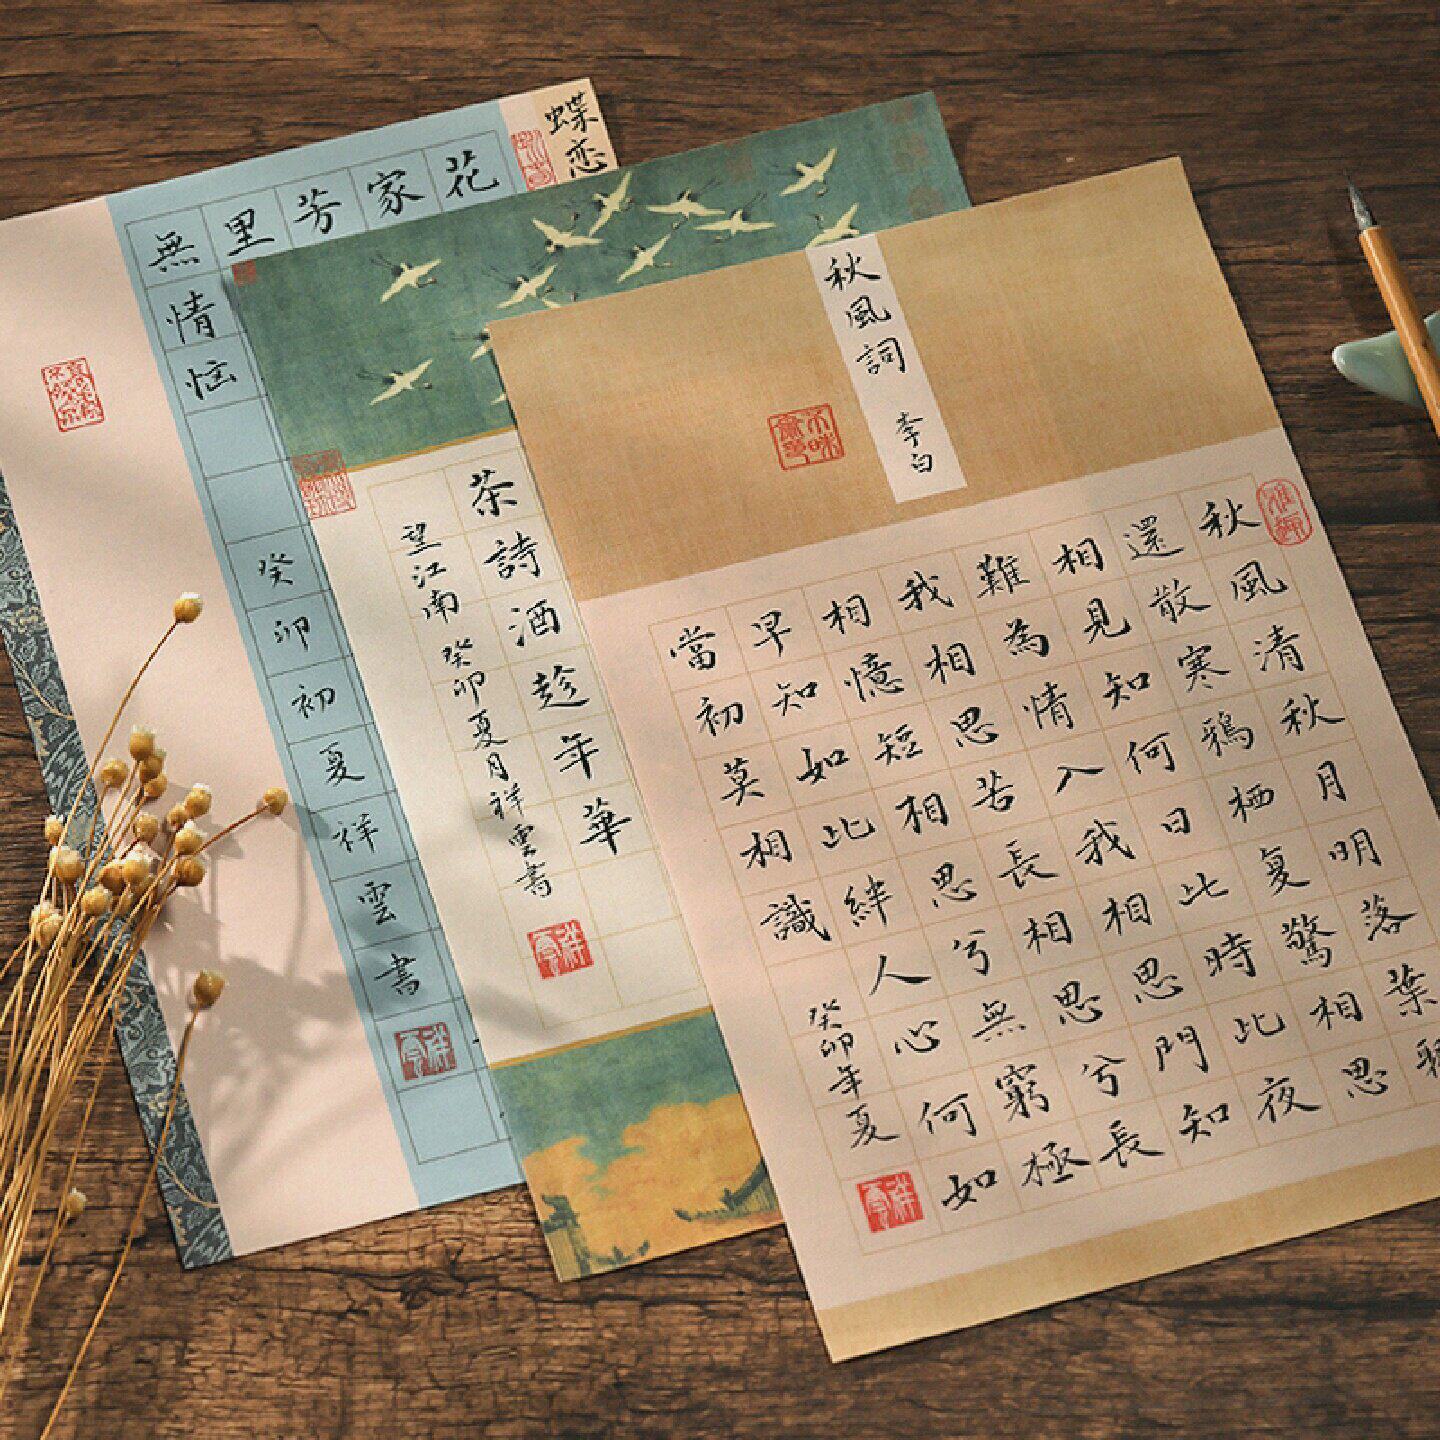 秋風詞 李白
秋風清秋月明落葉
還散寒鴉栖复驚相思
相見知何日此時此夜
難為情入我相思門知
我相思苦長相思兮長
相憶短相思兮無窮極
早知如此絆人心何如
當初莫相識
癸卯年夏
祥雲
雅趣
茶詩酒趁年華
望江南 癸卯夏月祥雲書
祥雲
蝶恋
花
家
芳
里
無情恼
癸卯初夏祥雲書
祥雲